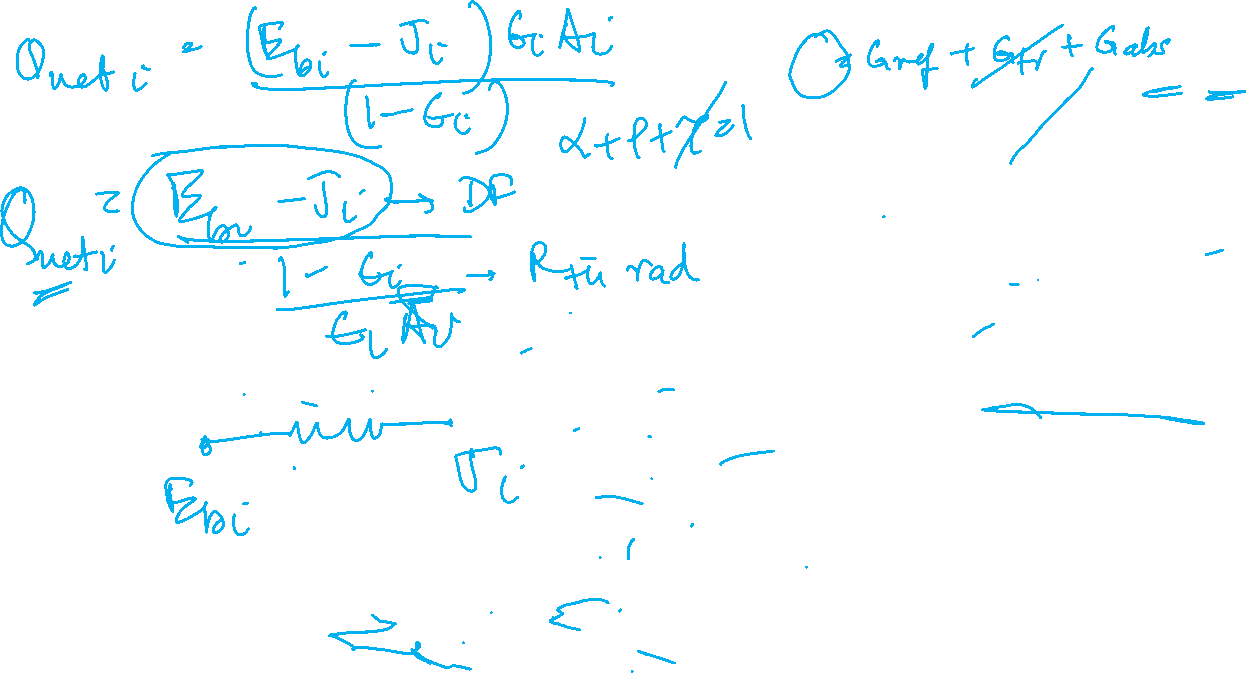 Qnet i = (Ebi - Ji) Ɛi Ai / (1 - Ɛi)
= Gref + Gtr + Gabs
α + ρ + τ = 1
Qnet i = Ebi - Ji → DF
1 - Ɛi / Ɛi Ai → rad
Ebi Ji